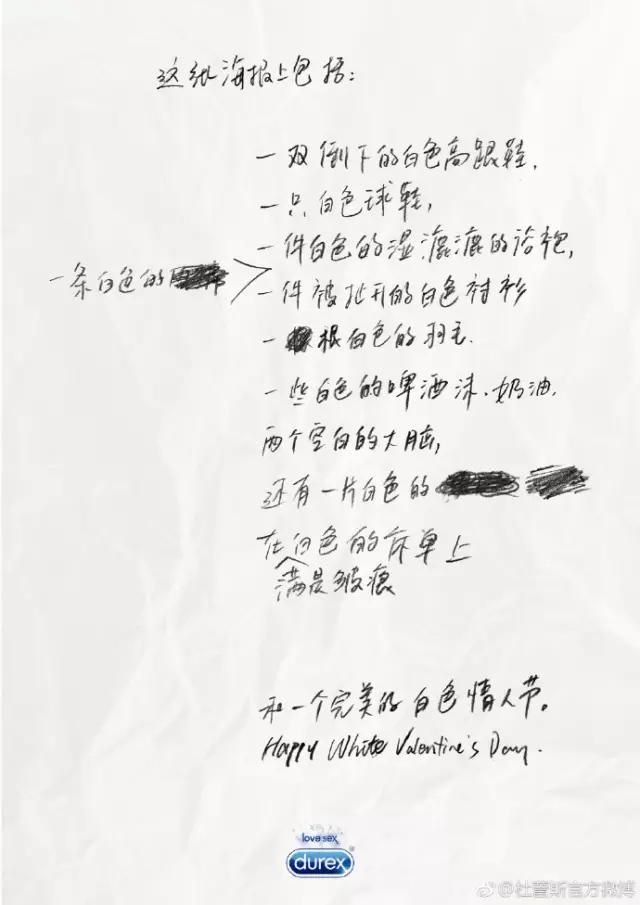 这纸海报上包括：
一双倒下的白色高跟鞋，
一只白色球鞋，
一件白色的湿漉漉的浴袍，
一条白色的
一件被扯开的白色衬衫
一根白色的羽毛
一些白色的啤酒沫、奶油，
两个空白的大脑，
还有一片白色的
在白色的床单上
满是皱痕
和一个完美的白色情人节。
Happy White Valentine's Day.
love sex
durex®
@杜蕾斯官方微博